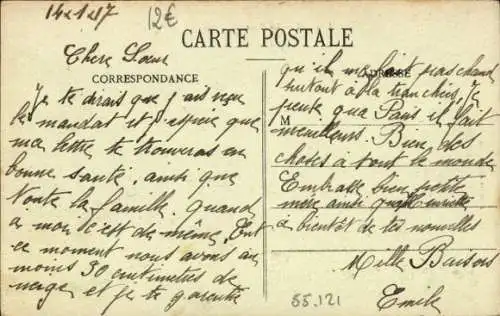 14-1-17
12€
CARTE POSTALE
Chere Soeur
CORRESPONDANCE
Je te dirais que j ais reçu
le mandat et j espere que
ma lettre te trouveras en
bonne santé. ainsi que
toute la famille. quand
a moi c'est de même. Ent
ce moment nous avons au
moins 30 centimetres de
neige et je te garentie
qu'il ne fait pas chaud
ADRESSE
surtout a la tranchée, Je
pense qua Paris il fait
M
meilleurs. Bien des
choses a tout le monde
Embrasse bien petite
mere ainsi
à bientôt de tes nouvelles
Mille Baisers
Emile
55.121